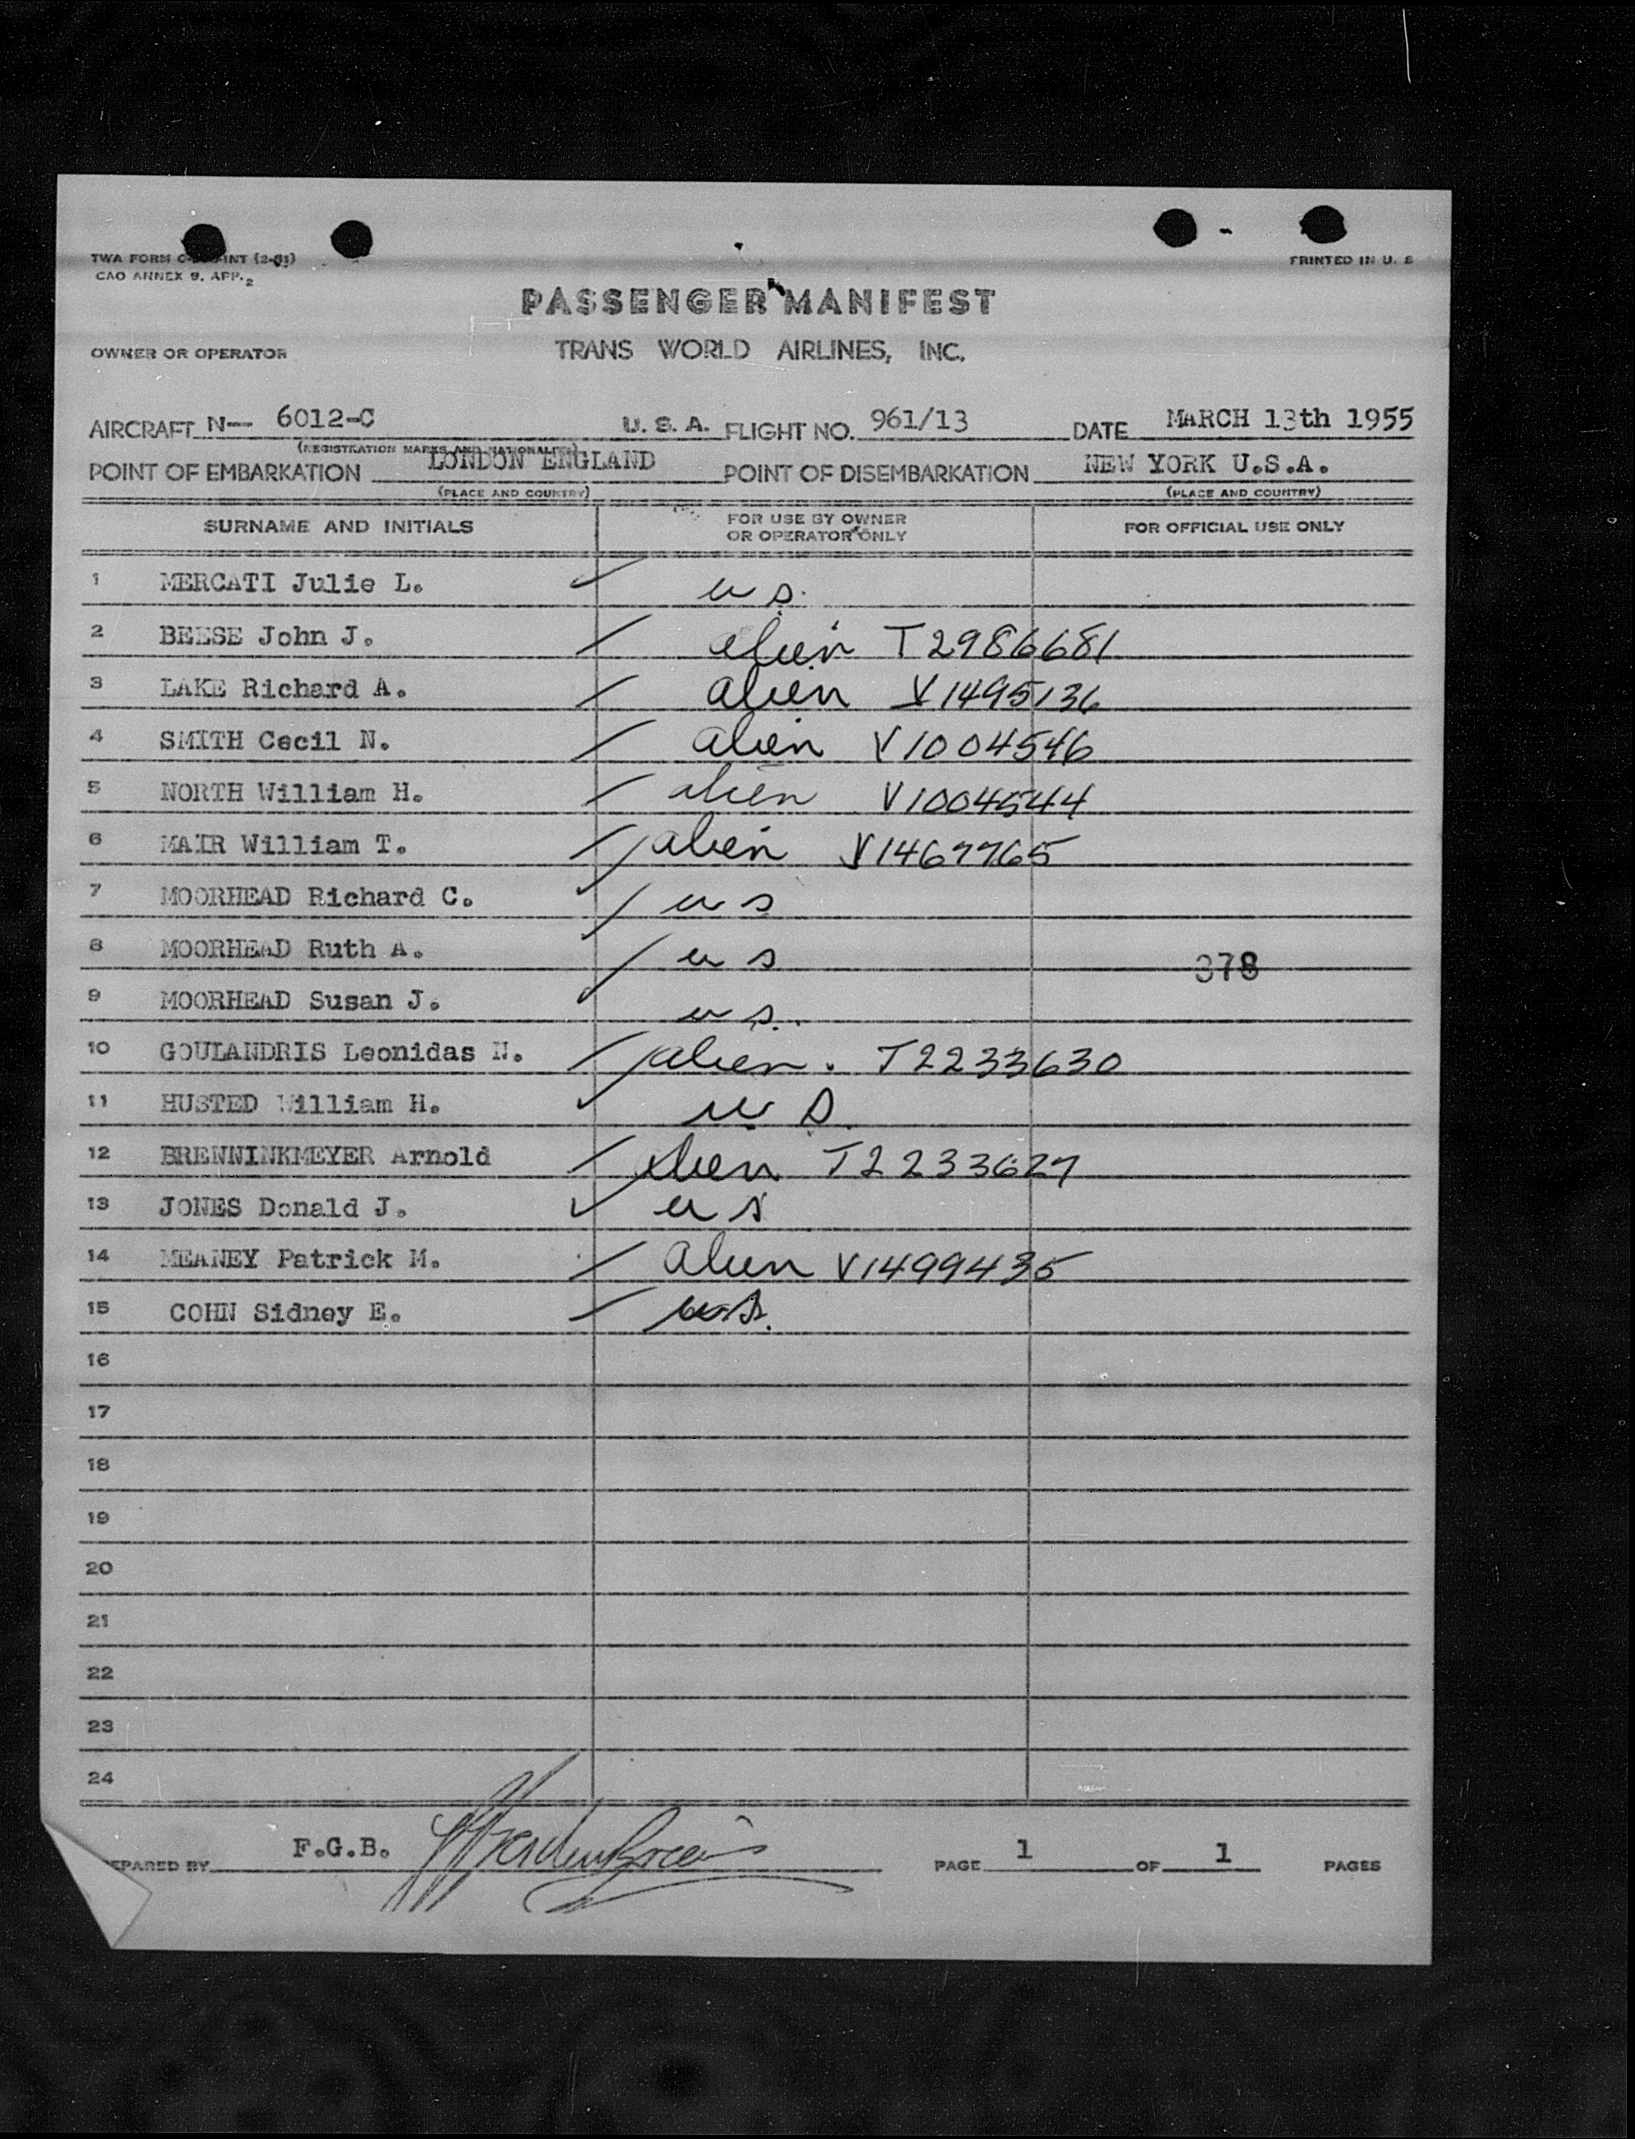 TWA FORM INT (2-51) PRINTED IN U. S
CAO ANNEX 9, APP. 2
PASSENGER MANIFEST
OWNER OR OPERATOR TRANS WORLD AIRLINES, INC.
AIRCRAFT N— 6012-C U. S. A. FLIGHT NO. 961/13 DATE MARCH 13th 1955
(REGISTRATION MARKS AND NATIONALITY)
POINT OF EMBARKATION LONDON ENGLAND POINT OF DISEMBARKATION NEW YORK U.S.A.
(PLACE AND COUNTRY) (PLACE AND COUNTRY)
SURNAME AND INITIALS FOR USE BY OWNER OR OPERATOR ONLY FOR OFFICIAL USE ONLY
1 MERCATI Julie L. ✓ us.
2 BEESE John J. / alien T2986681
3 LAKE Richard A. / alien V1495136
4 SMITH Cecil N. / alien V1004546
5 NORTH William H. / alien V1004544
6 MAIR William T. / alien V1467765
7 MOORHEAD Richard C. ✓ us
8 MOORHEAD Ruth A. ✓ us 378
9 MOORHEAD Susan J. ✓ us.
10 GOULANDRIS Leonidas N. / alien. T2233630
11 HUSTED William H. ✓ us.
12 BRENNINKMEYER Arnold / alien T2233627
13 JONES Donald J. ✓ us
14 MEANEY Patrick M. / alien V1499435
15 COHN Sidney E. / us.
16
17
18
19
20
21
22
23
24
PREPARED BY F.G.B. PAGE 1 OF 1 PAGES